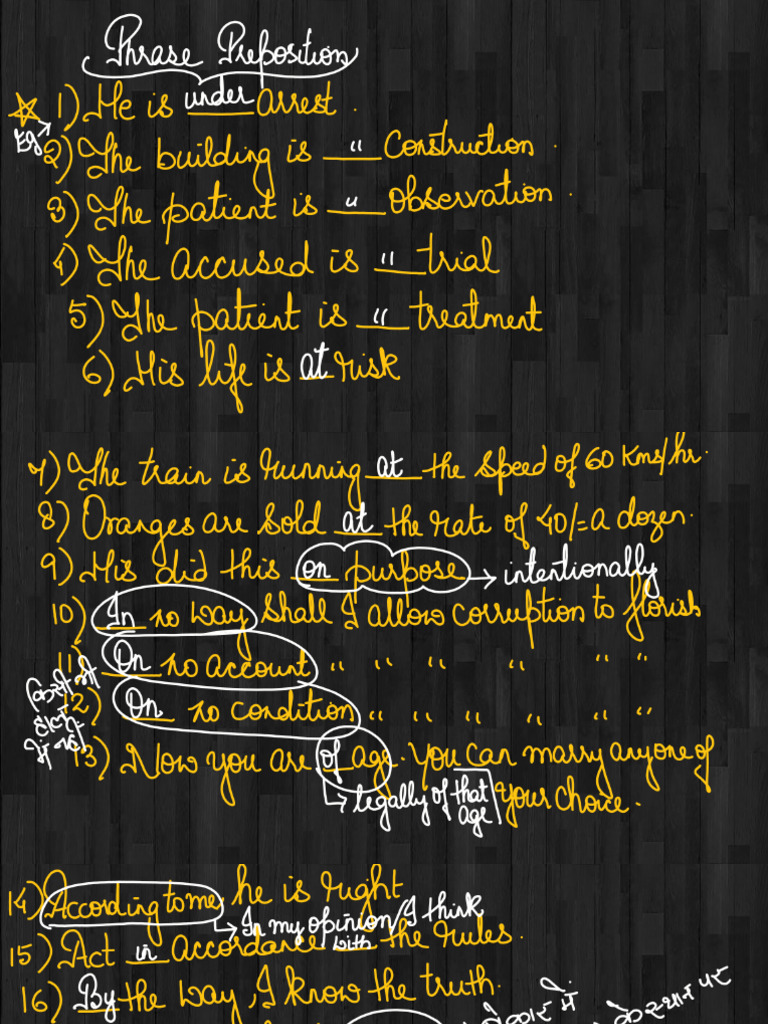 Phrase Preposition
1) He is under arrest.
Eg → 2) The building is " Construction.
3) The patient is " observation.
4) The accused is " trial
5) The patient is " treatment
6) His life is at risk
7) The train is running at the speed of 60 Kms/hr.
8) Oranges are sold at the rate of 40/= a dozen.
9) His did this on purpose → intentionally
10) In no way shall I allow corruption to florish
11) On no account " " " " " "
12) On no condition " " " " " "
किसी भी
हालत
में नहीं
13) Now you are of age. You can marry anyone of
your choice.
↳ legally of that age
14) According to me, he is right
↳ In my opinion/I think
15) Act in accordance with the rules.
16) By the way, I know the truth.
के स्थान पर